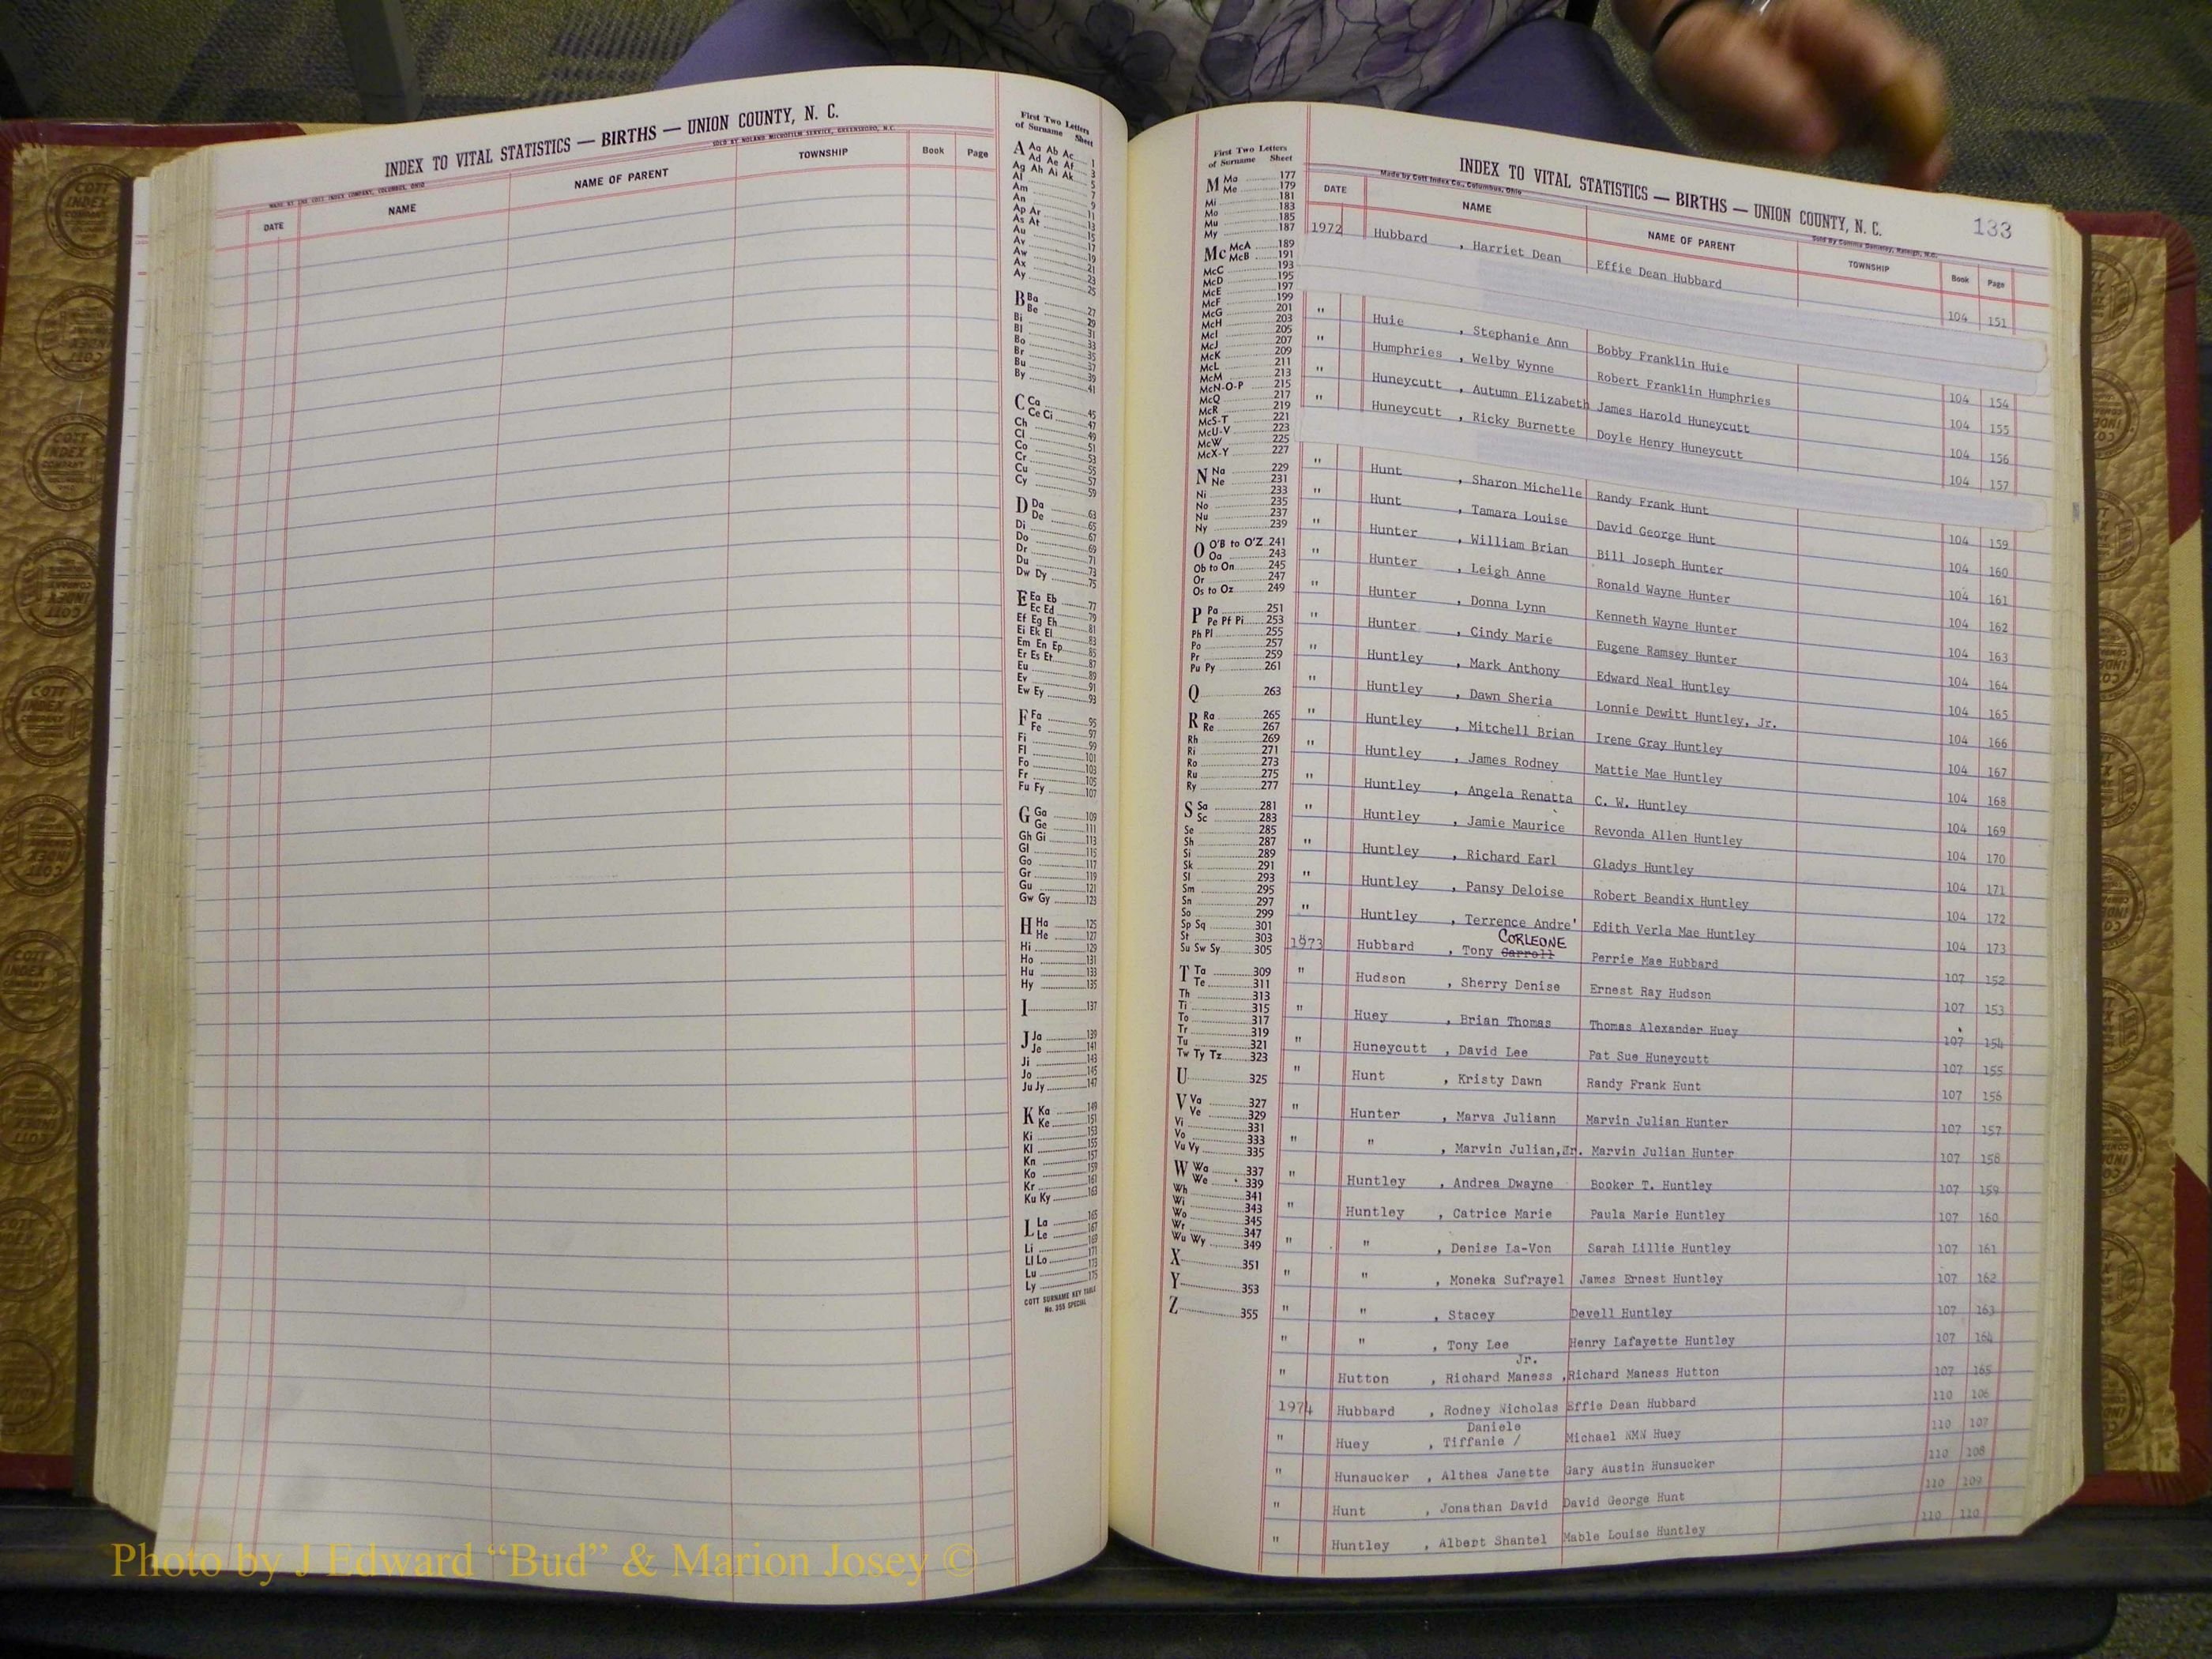 INDEX TO VITAL STATISTICS — BIRTHS — UNION COUNTY, N. C.
MADE BY THE COTT INDEX COMPANY, COLUMBUS, OHIO
SOLD BY NOLAND MICROFILM SERVICE, GREENSBORO, N.C.
DATE NAME NAME OF PARENT TOWNSHIP Book Page
First Two Letters
of Surname Sheet
A Aa Ab Ac 1
Ad Ae Af 3
Ag Ah Ai Ak 5
Al 7
Am 9
An 11
Ap Ar 13
As At 15
Au 17
Av 19
Aw 21
Ax 23
Ay 25
B Ba 27
Be 29
Bi 31
Bl 33
Bo 35
Br 37
Bu 39
By 41
C Ca 45
Ce Ci 47
Ch 49
Cl 51
Co 53
Cr 55
Cu 57
Cy 59
D Da 63
De 65
Di 67
Do 69
Dr 71
Du 73
Dw Dy 75
E Ea Eb 77
Ec Ed 79
Ef Eg Eh 81
Ei Ek El 83
Em En Ep 85
Er Es Et 87
Eu 89
Ev 91
Ew Ey 93
F Fa 95
Fe 97
Fi 99
Fl 101
Fo 103
Fr 105
Fu Fy 107
G Ga 109
Ge 111
Gh Gi 113
Gl 115
Go 117
Gr 119
Gu 121
Gw Gy 123
H Ha 125
He 127
Hi 129
Ho 131
Hu 133
Hy 135
I 137
J Ja 139
Je 141
Ji 143
Jo 145
Ju Jy 147
K Ka 149
Ke 151
Ki 153
Kl 155
Kn 157
Ko 159
Kr 161
Ku Ky 163
L La 165
Le 167
Li 169
Ll Lo 171
Lu 173
Ly 175
COTT SURNAME KEY TABLE
No. 355 SPECIAL
First Two Letters
of Surname Sheet
M Ma 177
Me 179
Mi 181
Mo 183
Mu 185
My 187
Mc McA 189
McB 191
McC 193
McD 195
McE 197
McF 199
McG 201
McH 203
McI 205
McJ 207
McK 209
McL 211
McM 213
McN-O-P 215
McQ 217
McR 219
McS-T 221
McU-V 223
McW 225
McX-Y 227
N Na 229
Ne 231
Ni 233
No 235
Nu 237
Ny 239
O O'B to O'Z 241
Oa 243
Ob to On 245
Or 247
Os to Oz 249
P Pa 251
Pe Pf Pi 253
Ph Pl 255
Po 257
Pr 259
Pu Py 261
Q 263
R Ra 265
Re 267
Rh 269
Ri 271
Ro 273
Ru 275
Ry 277
S Sa 281
Sc 283
Se 285
Sh 287
Si 289
Sk 291
Sl 293
Sm 295
Sn 297
So 299
Sp Sq 301
St 303
Su Sw Sy 305
T Ta 309
Te 311
Th 313
Ti 315
To 317
Tr 319
Tu 321
Tw Ty Tz 323
U 325
V Va 327
Ve 329
Vi 331
Vo 333
Vu Vy 335
W Wa 337
We 339
Wh 341
Wi 343
Wo 345
Wr 347
Wu Wy 349
X 351
Y 353
Z 355
INDEX TO VITAL STATISTICS — BIRTHS — UNION COUNTY, N. C. 133
Made by Cott Index Co., Columbus, Ohio
DATE NAME NAME OF PARENT TOWNSHIP Book Page
1972 Hubbard , Harriet Dean Effie Dean Hubbard 104 151
" Huie , Stephanie Ann Bobby Franklin Huie 104 154
" Humphries , Welby Wynne Robert Franklin Humphries 104 155
" Huneycutt , Autumn Elizabeth James Harold Huneycutt 104 156
" Huneycutt , Ricky Burnette Doyle Henry Huneycutt 104 157
" Hunt , Sharon Michelle Randy Frank Hunt 104 159
" Hunt , Tamara Louise David George Hunt 104 160
" Hunter , William Brian Bill Joseph Hunter 104 161
" Hunter , Leigh Anne Ronald Wayne Hunter 104 162
" Hunter , Donna Lynn Kenneth Wayne Hunter 104 163
" Hunter , Cindy Marie Eugene Ramsey Hunter 104 164
" Huntley , Mark Anthony Edward Neal Huntley 104 165
" Huntley , Dawn Sheria Lonnie Dewitt Huntley, Jr. 104 166
" Huntley , Mitchell Brian Irene Gray Huntley 104 167
" Huntley , James Rodney Mattie Mae Huntley 104 168
" Huntley , Angela Renatta C. W. Huntley 104 169
" Huntley , Jamie Maurice Revonda Allen Huntley 104 170
" Huntley , Richard Earl Gladys Huntley 104 171
" Huntley , Pansy Deloise Robert Beandix Huntley 104 172
" Huntley , Terrence Andre' Edith Verla Mae Huntley 104 173
CORLEONE
1973 Hubbard , Tony Carroll Perrie Mae Hubbard 107 152
" Hudson , Sherry Denise Ernest Ray Hudson 107 153
" Huey , Brian Thomas Thomas Alexander Huey 107 154
" Huneycutt , David Lee Pat Sue Huneycutt 107 155
" Hunt , Kristy Dawn Randy Frank Hunt 107 156
" Hunter , Marva Juliann Marvin Julian Hunter 107 157
" " , Marvin Julian,Jr. Marvin Julian Hunter 107 158
" Huntley , Andrea Dwayne Booker T. Huntley 107 159
" Huntley , Catrice Marie Paula Marie Huntley 107 160
" " , Denise La-Von Sarah Lillie Huntley 107 161
" " , Moneka Sufrayel James Ernest Huntley 107 162
" " , Stacey Devell Huntley 107 163
" " , Tony Lee Henry Lafayette Huntley 107 164
Jr.
" Hutton , Richard Maness , Richard Maness Hutton 107 165
1974 Hubbard , Rodney Nicholas Effie Dean Hubbard 110 106
Daniele
" Huey , Tiffanie / Michael NMN Huey 110 107
" Hunsucker , Althea Janette Gary Austin Hunsucker 110 108
" Hunt , Jonathan David David George Hunt 110 109
" Huntley , Albert Shantel Mable Louise Huntley 110 110
Photo by J Edward “Bud” & Marion Josey ©